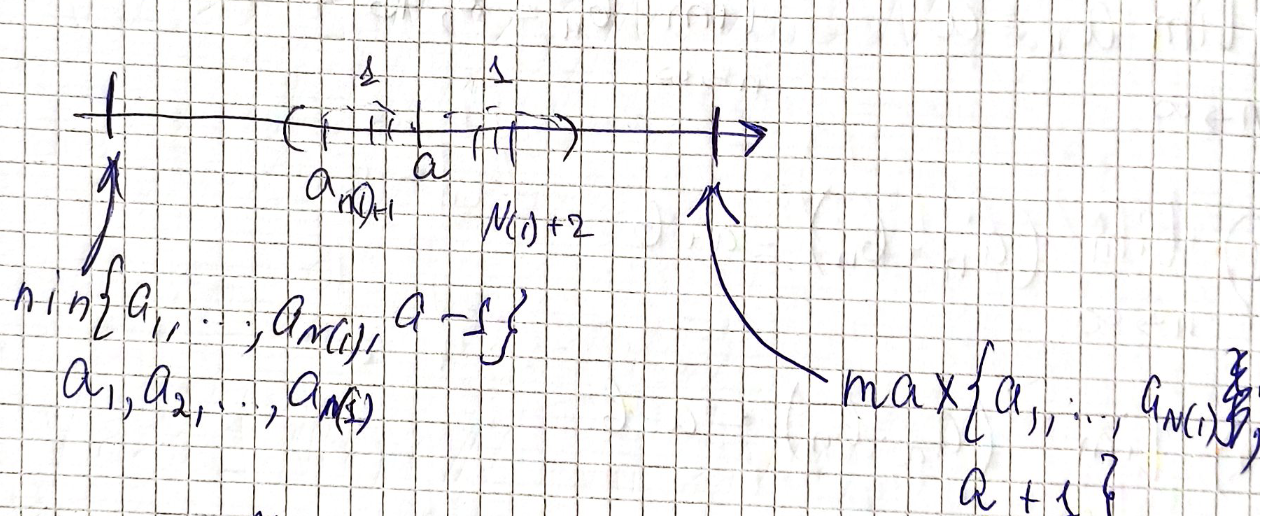 1 1
a
a_{N(1)+1}
N(1)+2
min{a_1, ..., a_{N(1)}, a-1}
a_1, a_2, ..., a_{N(1)}
max{a_1, ..., a_{N(1)},
a+1}